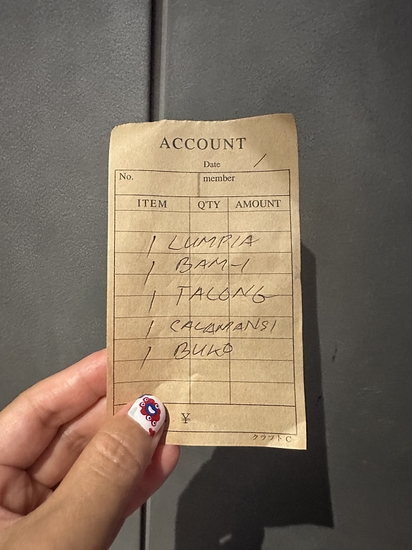 ACCOUNT
Date /
No. member
ITEM Q'TY AMOUNT
1 LUMPIA
1 BAM-I
1 TALONG
1 CALAMANSI
1 BUKO
¥
クラフトC